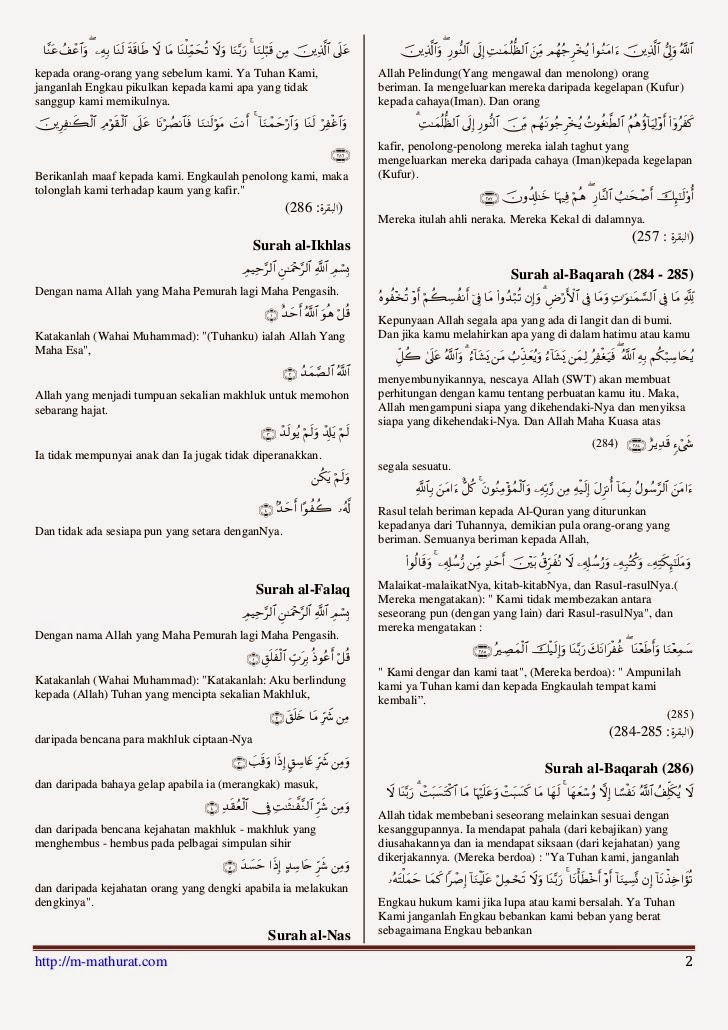 ٱللَّهُ وَلِىُّ ٱلَّذِينَ ءَامَنُوا۟ يُخْرِجُهُم مِّنَ ٱلظُّلُمَـٰتِ إِلَى ٱلنُّورِ ۖ وَٱلَّذِينَ
Allah Pelindung(Yang mengawal dan menolong) orang
beriman. Ia mengeluarkan mereka daripada kegelapan (Kufur)
kepada cahaya(Iman). Dan orang
كَفَرُوٓا۟ أَوْلِيَآؤُهُمُ ٱلطَّـٰغُوتُ يُخْرِجُونَهُم مِّنَ ٱلنُّورِ إِلَى ٱلظُّلُمَـٰتِ ۗ
kafir, penolong-penolong mereka ialah taghut yang
mengeluarkan mereka daripada cahaya (Iman)kepada kegelapan
(Kufur).
أُو۟لَـٰٓئِكَ أَصْحَـٰبُ ٱلنَّارِ ۖ هُمْ فِيهَا خَـٰلِدُونَ ﴿٢٥٧﴾
Mereka itulah ahli neraka. Mereka Kekal di dalamnya.
(البقرة : 257)
Surah al-Baqarah (284 - 285)
لِّلَّهِ مَا فِى ٱلسَّمَـٰوَٰتِ وَمَا فِى ٱلْأَرْضِ ۗ وَإِن تُبْدُوا۟ مَا فِىٓ أَنفُسِكُمْ أَوْ تُخْفُوهُ
Kepunyaan Allah segala apa yang ada di langit dan di bumi.
Dan jika kamu melahirkan apa yang di dalam hatimu atau kamu
يُحَاسِبْكُم بِهِ ٱللَّهُ ۖ فَيَغْفِرُ لِمَن يَشَآءُ وَيُعَذِّبُ مَن يَشَآءُ ۗ وَٱللَّهُ عَلَىٰ كُلِّ
menyembunyikannya, nescaya Allah (SWT) akan membuat
perhitungan dengan kamu tentang perbuatan kamu itu. Maka,
Allah mengampuni siapa yang dikehendaki-Nya dan menyiksa
siapa yang dikehendaki-Nya. Dan Allah Maha Kuasa atas
شَىْءٍ قَدِيرٌ ﴿٢٨٤﴾ (284)
segala sesuatu.
ءَامَنَ ٱلرَّسُولُ بِمَآ أُنزِلَ إِلَيْهِ مِن رَّبِّهِۦ وَٱلْمُؤْمِنُونَ ۚ كُلٌّ ءَامَنَ بِٱللَّهِ
Rasul telah beriman kepada Al-Quran yang diturunkan
kepadanya dari Tuhannya, demikian pula orang-orang yang
beriman. Semuanya beriman kepada Allah,
وَمَلَـٰٓئِكَتِهِۦ وَكُتُبِهِۦ وَرُسُلِهِۦ لَا نُفَرِّقُ بَيْنَ أَحَدٍ مِّن رُّسُلِهِۦ ۚ وَقَالُوا۟
Malaikat-malaikatNya, kitab-kitabNya, dan Rasul-rasulNya.(
Mereka mengatakan): " Kami tidak membezakan antara
seseorang pun (dengan yang lain) dari Rasul-rasulNya", dan
mereka mengatakan :
سَمِعْنَا وَأَطَعْنَا ۖ غُفْرَانَكَ رَبَّنَا وَإِلَيْكَ ٱلْمَصِيرُ ﴿٢٨٥﴾
" Kami dengar dan kami taat", (Mereka berdoa): " Ampunilah
kami ya Tuhan kami dan kepada Engkaulah tempat kami
kembali”.
(285)
(البقرة: 284-285)
Surah al-Baqarah (286)
لَا يُكَلِّفُ ٱللَّهُ نَفْسًا إِلَّا وُسْعَهَا ۚ لَهَا مَا كَسَبَتْ وَعَلَيْهَا مَا ٱكْتَسَبَتْ ۗ رَبَّنَا لَا
Allah tidak membebani seseorang melainkan sesuai dengan
kesanggupannya. Ia mendapat pahala (dari kebajikan) yang
diusahakannya dan ia mendapat siksaan (dari kejahatan) yang
dikerjakannya. (Mereka berdoa) : "Ya Tuhan kami, janganlah
تُؤَاخِذْنَآ إِن نَّسِينَآ أَوْ أَخْطَأْنَا ۚ رَبَّنَا وَلَا تَحْمِلْ عَلَيْنَآ إِصْرًا كَمَا حَمَلْتَهُۥ
Engkau hukum kami jika lupa atau kami bersalah. Ya Tuhan
Kami janganlah Engkau bebankan kami beban yang berat
sebagaimana Engkau bebankan
عَلَى ٱلَّذِينَ مِن قَبْلِنَا ۚ رَبَّنَا وَلَا تُحَمِّلْنَا مَا لَا طَاقَةَ لَنَا بِهِۦ ۖ وَٱعْفُ عَنَّا
kepada orang-orang yang sebelum kami. Ya Tuhan Kami,
janganlah Engkau pikulkan kepada kami apa yang tidak
sanggup kami memikulnya.
وَٱغْفِرْ لَنَا وَٱرْحَمْنَآ ۚ أَنتَ مَوْلَىٰنَا فَٱنصُرْنَا عَلَى ٱلْقَوْمِ ٱلْكَـٰفِرِينَ
﴿٢٨٦﴾
Berikanlah maaf kepada kami. Engkaulah penolong kami, maka
tolonglah kami terhadap kaum yang kafir."
(البقرة: 286)
Surah al-Ikhlas
بِسْمِ ٱللَّهِ ٱلرَّحْمَـٰنِ ٱلرَّحِيمِ
Dengan nama Allah yang Maha Pemurah lagi Maha Pengasih.
قُلْ هُوَ ٱللَّهُ أَحَدٌ ﴿١﴾
Katakanlah (Wahai Muhammad): "(Tuhanku) ialah Allah Yang
Maha Esa",
ٱللَّهُ ٱلصَّمَدُ ﴿٢﴾
Allah yang menjadi tumpuan sekalian makhluk untuk memohon
sebarang hajat.
لَمْ يَلِدْ وَلَمْ يُولَدْ ﴿٣﴾
Ia tidak mempunyai anak dan Ia jugak tidak diperanakkan.
وَلَمْ يَكُن
لَّهُۥ كُفُوًا أَحَدٌۢ ﴿٤﴾
Dan tidak ada sesiapa pun yang setara denganNya.
Surah al-Falaq
بِسْمِ ٱللَّهِ ٱلرَّحْمَـٰنِ ٱلرَّحِيمِ
Dengan nama Allah yang Maha Pemurah lagi Maha Pengasih.
قُلْ أَعُوذُ بِرَبِّ ٱلْفَلَقِ ﴿١﴾
Katakanlah (Wahai Muhammad): "Katakanlah: Aku berlindung
kepada (Allah) Tuhan yang mencipta sekalian Makhluk,
مِن شَرِّ مَا خَلَقَ ﴿٢﴾
daripada bencana para makhluk ciptaan-Nya
وَمِن شَرِّ غَاسِقٍ إِذَا وَقَبَ ﴿٣﴾
dan daripada bahaya gelap apabila ia (merangkak) masuk,
وَمِن شَرِّ ٱلنَّفَّـٰثَـٰتِ فِى ٱلْعُقَدِ ﴿٤﴾
dan daripada bencana kejahatan makhluk - makhluk yang
menghembus - hembus pada pelbagai simpulan sihir
وَمِن شَرِّ حَاسِدٍ إِذَا حَسَدَ ﴿٥﴾
dan daripada kejahatan orang yang dengki apabila ia melakukan
dengkinya".
Surah al-Nas
http://m-mathurat.com
2